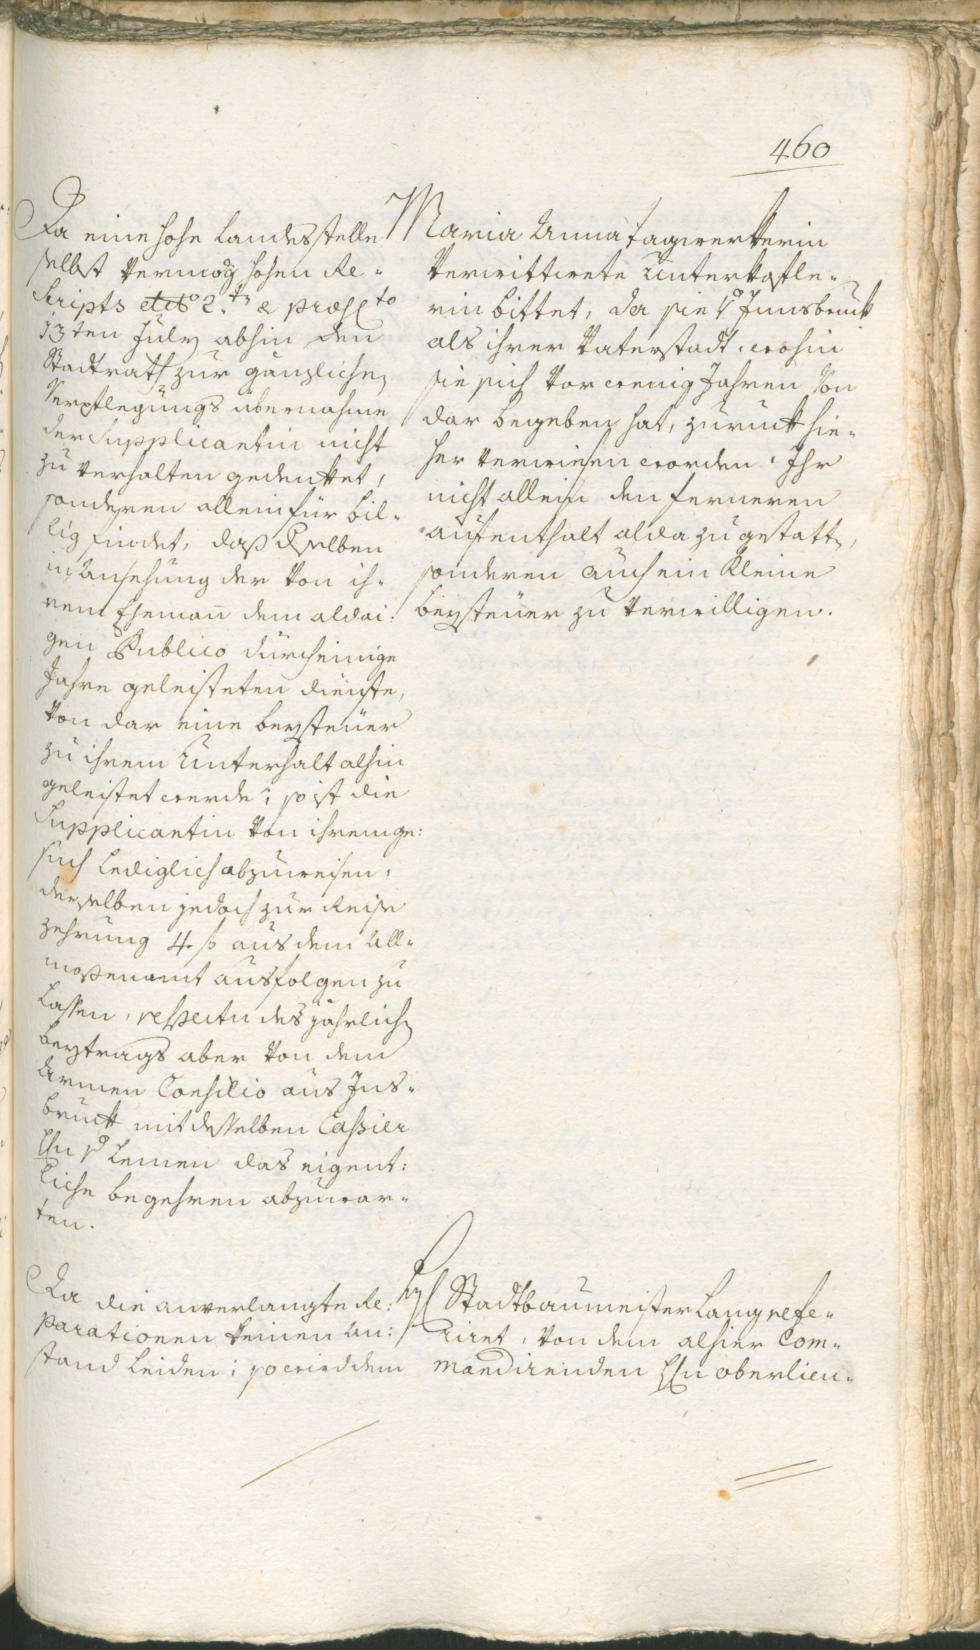 460
Da eine hohe Landesstelle
selbst vermög hohen Re-
scripts dtto 2.ten & præs.to
13ten July abhin den
Stadtrath zur gänzlichen
Verpflegungs übernahme
der Supplicantin nicht
zu verhalten gedenket,
sonderen allein für bil-
lig findet, daß derselben
in Ansehung der von ih-
rem Ehemañ dem aldai-
gen Publico durch einige
Jahre geleisteten dienste,
von dar eine beysteuer
zu ihrem Unterhalt alhin
geleistet werde; so ist die
Supplicantin von ihrem ge:
such lediglich abzuweisen,
derselben jedoch zur Reise
zehrung 4. f aus dem All-
mosenamt ausfolgen zu
lassen, respectu des jährlichen
beytrags aber von dem
Armen Consilio aus Ins-
bruck mit desselben Cassier
Hn v Lemen das eigent:
liche begehren abzuwar-
ten.
Maria Anna Tagwerkerin
verwittwete Unterkofle-
rin bittet, da sie v Innsbruck
als ihrer Vaterstadt, wohin
sie sich vor wenig Jahren von
dar begeben hat, zuruck hie-
her verwiesen worden. Ihr
nicht allein den ferneren
aufenthalt alda zu gestatten,
sonderen auch ein kleine
beysteuer zu verwilligen.
Da die anverlangte Re:
parationen keinen An:
stand leiden; so wird dem
H Stadtbaumeister Lang refe-
riret, von dem alhier Com-
mandirenden Hn oberlieu-